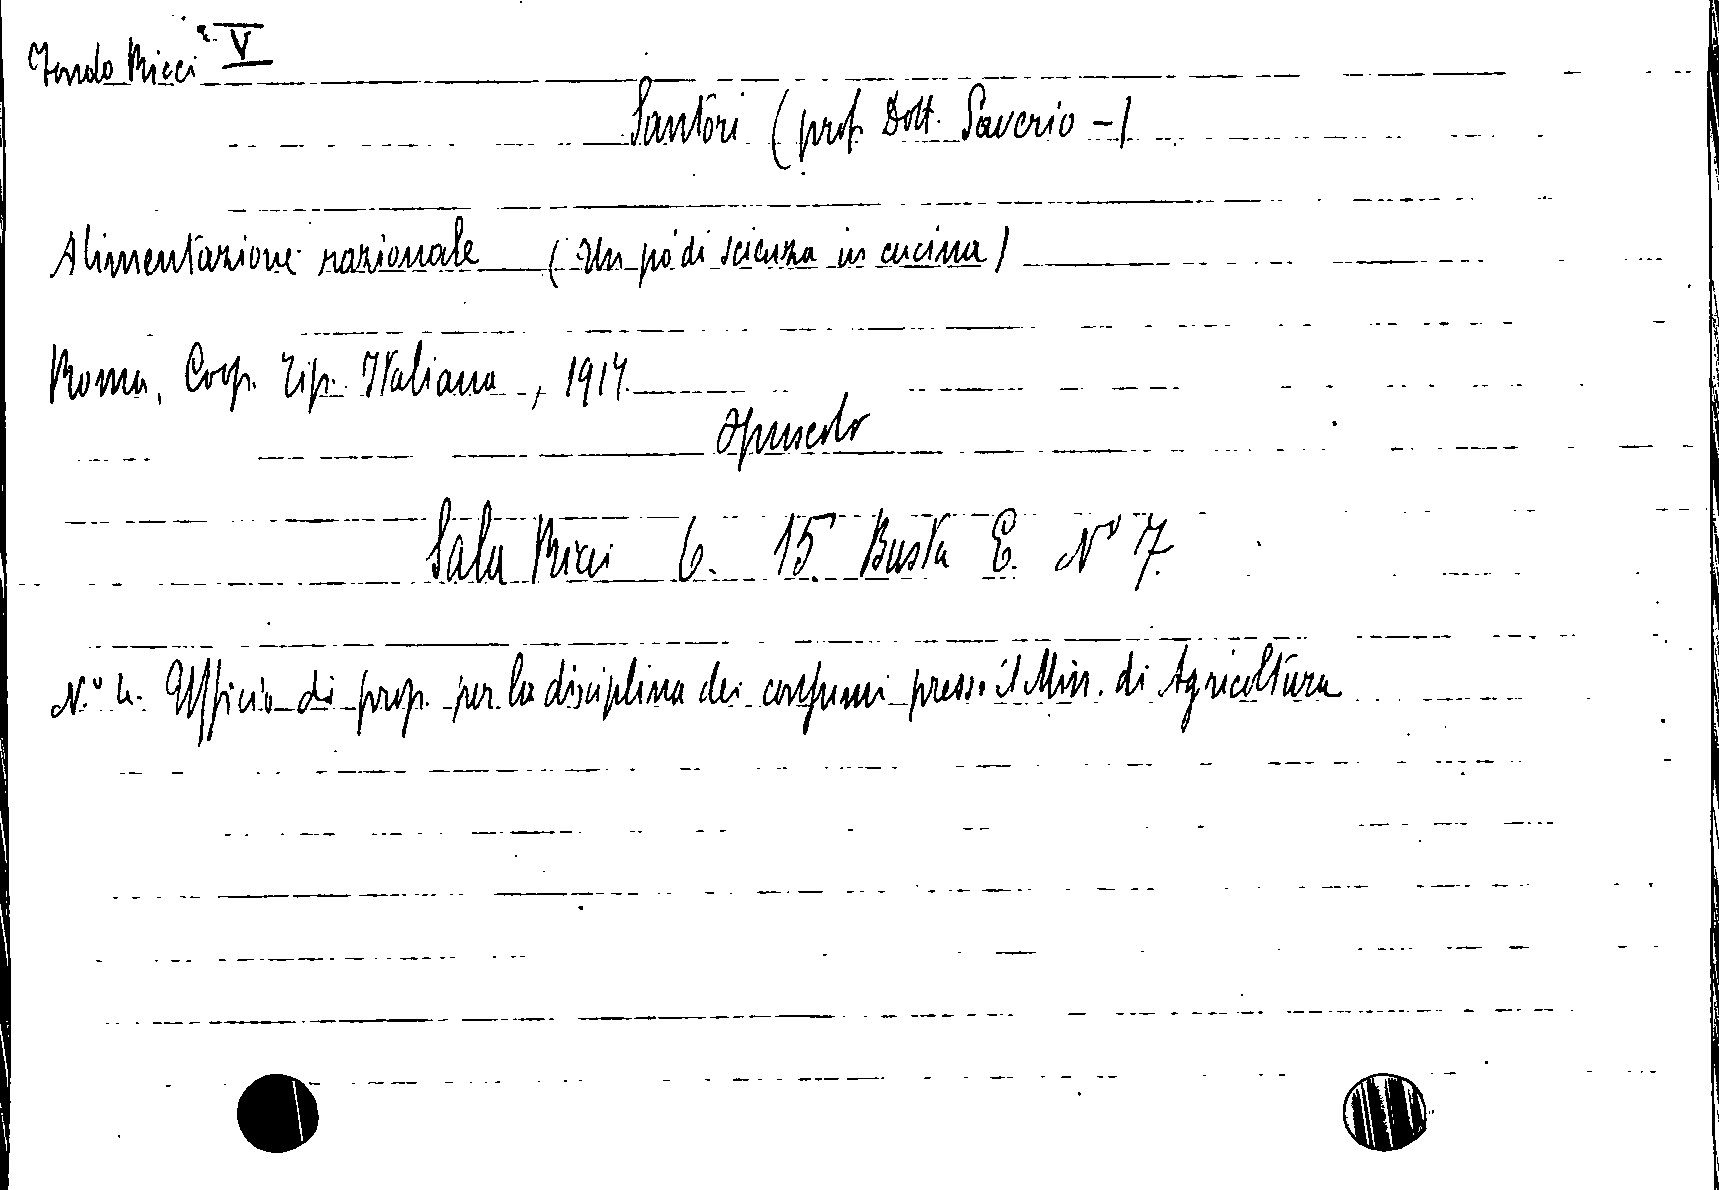 Fondo Ricci V
Santori (prof. Dott. Saverio -)
Alimentazione razionale (Un pò di scienza in cucina)
Roma, Coop. Tip. Italiana, 1917.
Opuscolo
Sala Ricci 6. 15. Busta E. N° 7.
N.° 4. Ufficio di prop. per la disciplina dei consumi presso il Min. di Agricoltura